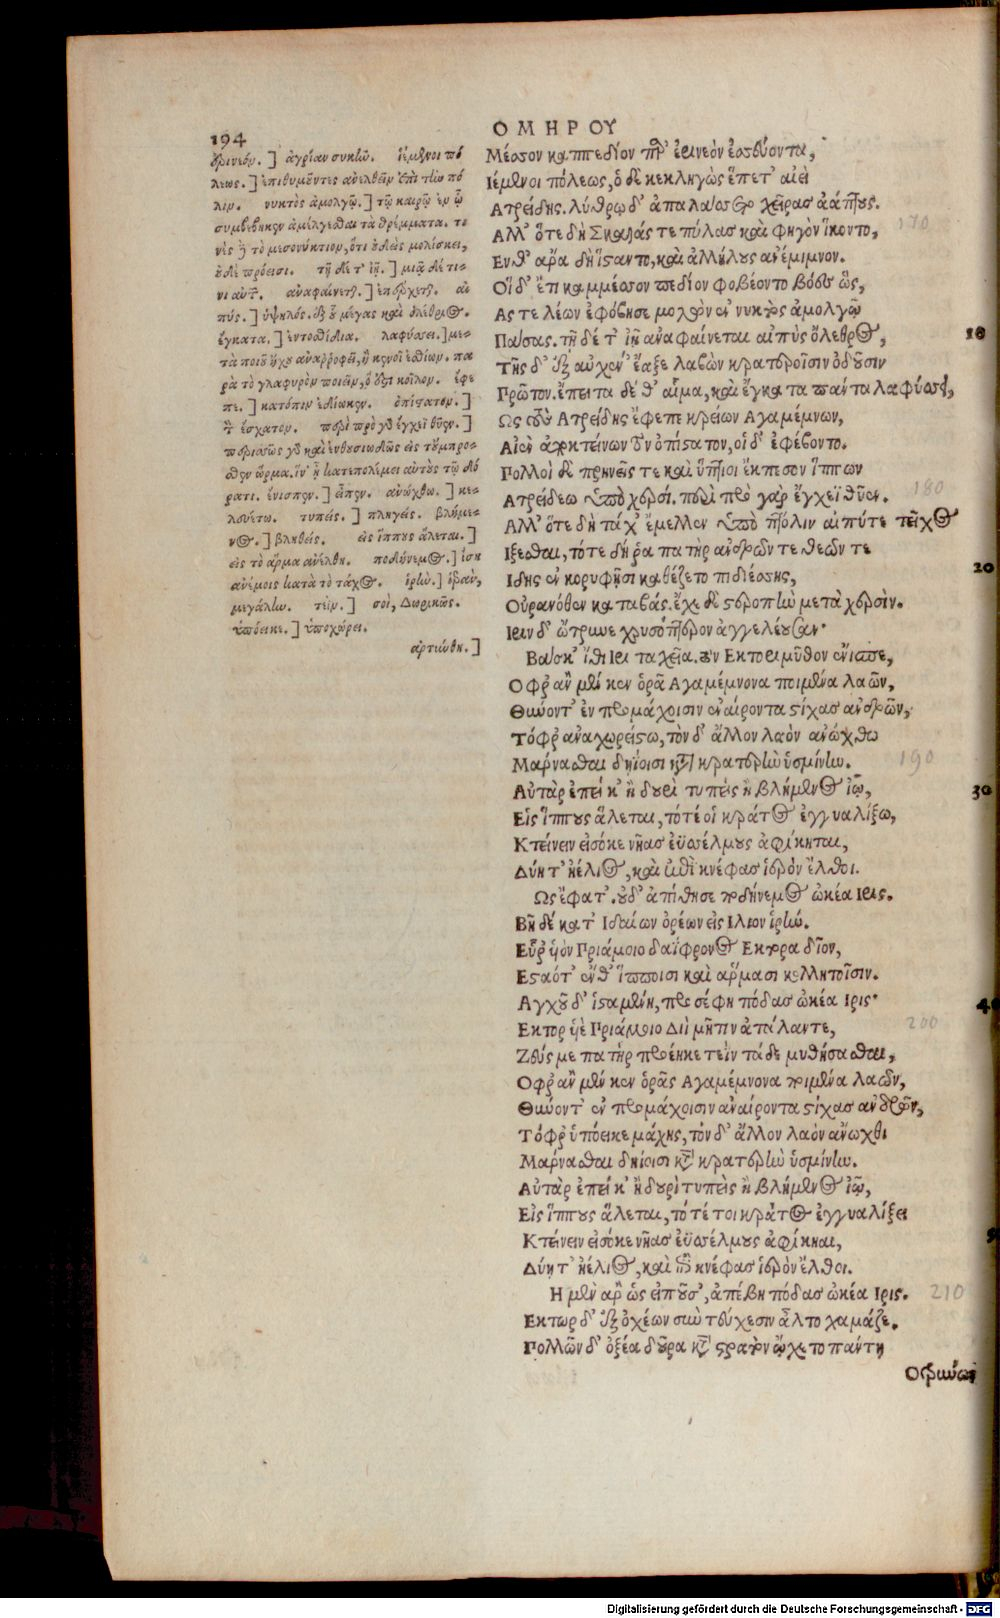 194
ΟΜΗΡΟΥ
ἐρινεόν.] ἀγρίαν συκῆν. ἱέμενοι πό
λεως.] ἐπιθυμοῦντες ἀνελθεῖν ἐπὶ τὴν πό
λιν. νυκτὸς ἀμολγῷ.] τῷ καιρῷ ἐν ᾧ
συμβέβηκεν ἀμέλγεσθαι τὰ θρέμματα. τι
νὲς δὲ τὸ μεσονύκτιον, ὅτι οὐδεὶς μολίσκει,
οὐδὲ πρόεισι. τῇ δέ τ' ἰῇ.] μιᾷ δέ τι-
νι αὐτῶν. ἀναφαίνεται.] ἐπέρχεται. αἰ
πύς.] ὑψηλός. ἐξ οὗ μέγας καὶ ὀλέθριος.
ἔγκατα.] ἐντοσθίδια. λαφύσσει.] με-
τὰ ποιοῦ ἤχου ἀναρροφεῖ, ἢ κενοῖ ἐσθίων. πα
ρὰ τὸ γλαφυρὸν ποιεῖν, ὅ ἐστι κοῖλον. ἔφε
πε.] κατόπιν ἐδίωκεν. ὀπίστατον.]
τὸν ἔσχατον. περὶ πρὸ γὰρ ἔγχεϊ θῦεν.]
περισσῶς γὰρ καὶ ἐνθουσιωδῶς εἰς τοὔμπρο-
σθεν ὥρμα. ἵν' ᾖ κατεπολέμει αὐτοὺς τῷ δό
ρατι. ἔνισπεν.] εἶπεν. ἀνώχθω.] κε-
λευέτω. τυπείς.] πληγείς. βλήμε-
νος.] βληθείς. εἰς ἵππους ἅλεται.]
εἰς τὸ ἅρμα ἀνέλθῃ. ποδήνεμος.] ἴση
ἀνέμοις κατὰ τὸ τάχος. ἱρὴν.] ἱερὰν,
μεγάλην. τεῒν.] σοὶ, Δωρικῶς.
ὑπόεικε.] ὑποχώρει.
ἀρτιώθη.]
Μέσσον καππεδίον παρ' ἐρινεὸν ἐσσεύοντα,
Ιέμενοι πόλεως, ὁ δὲ κεκληγὼς ἕπετ' αἰεὶ
Ατρείδης. λύθρῳ δ' ἀπαλάσσετο χεῖρας ἀάπτους.
Αλλ' ὅτε δὴ Σκαιάς τε πύλας καὶ φηγὸν ἵκοντο,
Ενθ' ἄρα δὴ ἵσαντο, καὶ ἀλλήλους ἀνέμιμνον.
Οἱ δ' ἔτι καμμέσσον πεδίον φοβέοντο βόες ὣς,
Ας τε λέων ἐφόβησε μολὼν ἐν νυκτὸς ἀμολγῷ
Πάσας. τῇ δέ τ' ἰῇ ἀναφαίνεται αἰπὺς ὄλεθρος,
Τῆς δ' ἐξ αὐχέν' ἔαξε λαβὼν κρατεροῖσιν ὀδοῦσιν
Πρῶτον. ἔπειτα δέ θ' αἷμα, καὶ ἔγκατα πάντα λαφύσσει,
Ως τοὺς Ατρείδης ἔφεπε κρείων Αγαμέμνων,
Αἰὲν ἀποκτείνων τὸν ὀπίστατον, οἱ δ' ἐφέβοντο.
Πολλοὶ δὲ πρηνεῖς τε καὶ ὕπτιοι ἔκπεσον ἵππων
Ατρείδεω ὑπὸ χερσί. περὶ πρὸ γὰρ ἔγχεϊ θῦεν.
Αλλ' ὅτε δὴ τάχ' ἔμελλεν ὑπὸ πτόλιν αἰπύ τε τεῖχος
Ιξεσθαι, τότε δή ῥα πατὴρ ἀνδρῶν τε θεῶν τε
Ιδης ἐν κορυφῇσι καθέζετο πιδιέσσης,
Οὐρανόθεν καταβάς. ἔχε δὲ στεροπὴν μετὰ χερσὶν.
Ιριν δ' ὤτρυνε χρυσόπτερον ἀγγελέουσαν·
Βάσκ' ἴθι Ιρι ταχεῖα. τὸν Εκτορι μῦθον ἐνίσπε,
Οφρ' ἂν μέν κεν ὁρᾷ Αγαμέμνονα ποιμένα λαῶν,
Θύνοντ' ἐν προμάχοισιν ἐναίροντα στίχας ἀνδρῶν,
Τόφρ' ἀναχωρείτω, τὸν δ' ἄλλον λαὸν ἀνώχθω
Μάρνασθαι δηΐοισι κατὰ κρατερὴν ὑσμίνην.
Αὐτὰρ ἐπεί κ' ἢ δουρὶ τυπεὶς ἢ βλήμενος ἰῷ,
Εἰς ἵππους ἅλεται, τότε οἱ κράτος ἐγγυαλίξω,
Κτείνειν εἰσόκε νῆας ἐϋσσέλμους ἀφίκηται,
Δύῃ τ' ἠέλιος, καὶ ἐπὶ κνέφας ἱερὸν ἔλθοι.
Ως ἔφατ'. οὐδ' ἀπίθησε ποδήνεμος ὠκέα Ιρις.
Βῆ δὲ κατ' Ιδαίων ὀρέων εἰς Ιλιον ἱρήν.
Εὗρ' υἱὸν Πριάμοιο δαΐφρονος Εκτορα δῖον,
Εσαότ' ἔνθ' ἵπποισι καὶ ἅρμασι κολλητοῖσιν.
Αγχοῦ δ' ἱσαμένη, προσέφη πόδας ὠκέα Ιρις·
Εκτορ υἱὲ Πριάμοιο Διὶ μῆτιν ἀτάλαντε,
Ζεύς με πατὴρ προέηκε τεῒν τάδε μυθήσασθαι,
Οφρ' ἂν μέν κεν ὁρᾷς Αγαμέμνονα ποιμένα λαῶν,
Θύνοντ' ἐν προμάχοισιν ἐναίροντα στίχας ἀνδρῶν,
Τόφρ' ὑπόεικε μάχης, τὸν δ' ἄλλον λαὸν ἄνωχθι
Μάρνασθαι δηΐοισι κατὰ κρατερὴν ὑσμίνην.
Αὐτὰρ ἐπεί κ' ἢ δουρὶ τυπεὶς ἢ βλήμενος ἰῷ,
Εἰς ἵππους ἅλεται, τότε τοι κράτος ἐγγυαλίξει
Κτείνειν εἰσόκε νῆας ἐϋσσέλμους ἀφίκηαι,
Δύῃ τ' ἠέλιος, καὶ ἐπὶ κνέφας ἱερὸν ἔλθοι.
Η μὲν ἄρ' ὣς εἰποῦσ', ἀπέβη πόδας ὠκέα Ιρις.
Εκτωρ δ' ἐξ ὀχέων σὺν τεύχεσιν ἆλτο χαμᾶζε.
Πολλῶν δ' ὀξέα δοῦρα κατὰ στρατὸν ᾤχετο πάντῃ
Οτρύνων
170
180
190
200
210
10
20
30
Digitalisierung gefördert durch die Deutsche Forschungsgemeinschaft - DFG